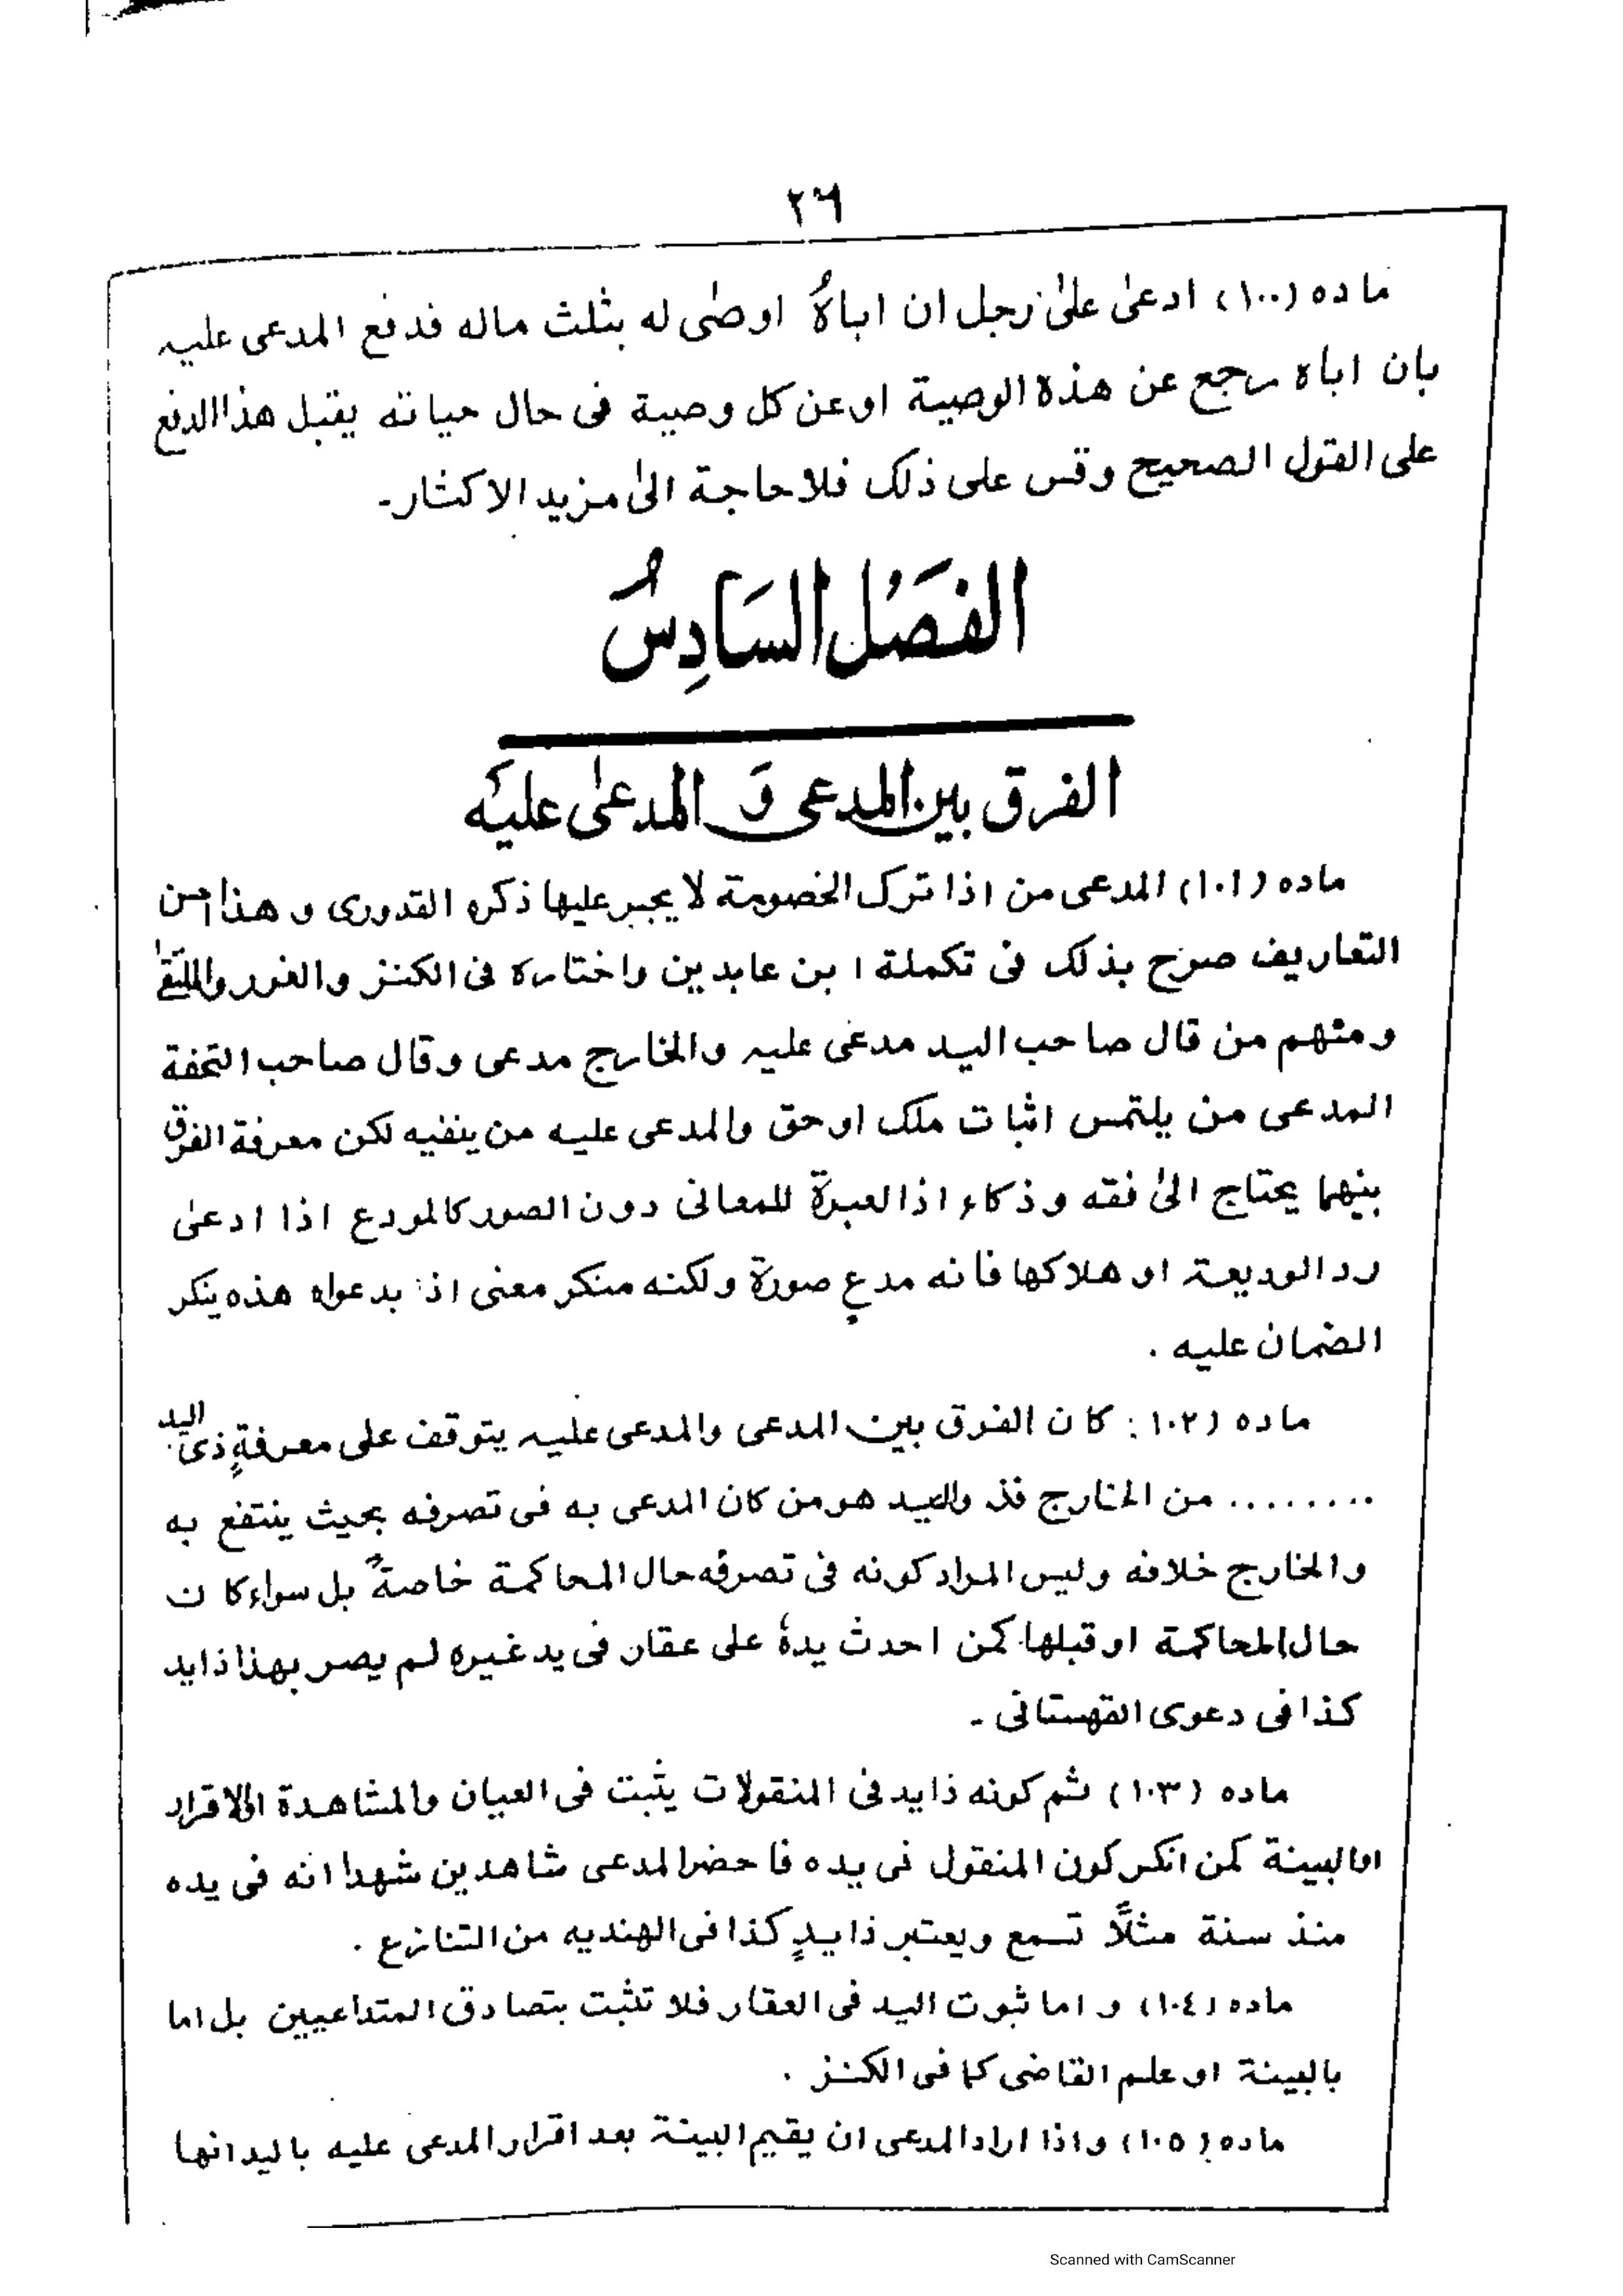 ٢٦
ماده (١٠٠) ادعىٰ علىٰ رجل ان اباهُ اوصٰى له بثلث ماله فدفع المدعى عليه
بان اباه رجع عن هذه الوصية اوعن كل وصية فى حال حياته يقبل هذا الدفع
على القول الصحيح وقس على ذلك فلا حاجة الىٰ مزيد الاكثار۔
الفَصُل السَادِسُ
الفرق بين المدعى وَ المدعىٰ عليَه
ماده (١٠١) المدعى من اذا ترك الخصومة لا يجبر عليها ذكره القدورى و هذا احسن
التعاريف صرح بذلك فى تكملة ابن عابدين واختاره فى الكنز والغرر والملتقىٰ
ومنهم من قال صاحب اليد مدعى عليه والخارج مدعى وقال صاحب التحفة
المدعى من يلتمس اثبات ملك اوحق والمدعى عليه من ينفيه لكن معرفة الفرق
بينهما يحتاج الىٰ فقه وذكاء اذا لعبرة للمعانى دون الصور كالمودع اذا ادعىٰ
رد الوديعة او هلاكها فانه مدعٍ صورة ولكنه منكر معنى اذ بدعواه هذه ينكر
الضمان عليه ۔
ماده (١٠٢) : كان الفرق بين المدعى والمدعى عليه يتوقف على معرفةٍ ذى اليد
........ من الخارج فذ واليد هو من كان المدعى به فى تصرفه بحيث ينتفع به
والخارج خلافه وليس المراد كونه فى تصرفه حال المحاكمة خاصةً بل سواء كان
حال المحاكمة او قبلها كمن احدث يدهُ على عقار فى يد غيره لم يصر بهذا ذايد
كذا فى دعوى القهستانى ۔
ماده (١٠٣) ثم كونه ذايد فى المنقولات يثبت فى العيان والمشاهدة اولاقرار
اوبالبينة كمن انكر كون المنقول فى يده فاحضر المدعى شاهدين شهدا انه فى يده
منذ سنة مثلًا تسمع ويعتبر ذايدٍ كذا فى الهنديه من التنازع ۔
ماده (١٠٤) و اما ثبوت اليد فى العقار فلا تثبت بتصادق المتداعيين بل اما
بالبينة او علم القاضى كما فى الكنز ۔
ماده (١٠٥) واذا اراد المدعى ان يقيم البينة بعد اقرار المدعى عليه باليد انها
Scanned with CamScanner